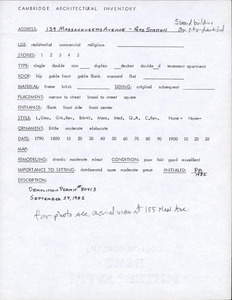 CAMBRIDGE ARCHITECTURAL INVENTORY
Second building
ADDRESS: 139 MASSACHUSETTS AVENUE - GAS STATION on site-demolished
USE: residential commercial religious
STORIES: 1 2 3 4 5
TYPE: single double row duplex double decker tenement apartment
ROOF: hip gable front gable flank mansard flat
MATERIAL: frame brick SIDING: original subsequent
PLACEMENT: narrow to street broad to street square
ENTRANCE: flank front side front center
STYLE: C, Geo, Grk, Rev, Brkt, Mans, Med, Q.A., C.Rev, None -
ORNAMENT: little moderate elaborate
DATE: 1790 1800 10 20 30 40 50 60 70 80 90 1900 10 20
MAP:
REMODELING: drastic moderate minor CONDITION: poor fair good excellent
IMPORTANCE TO SETTING: detrimental none moderate great INITIALED:
DESCRIPTION:
DEMOLITION PERMIT # 80413
SEPTEMBER 29, 1982
for photo see aerial view of 155 Mass Ave